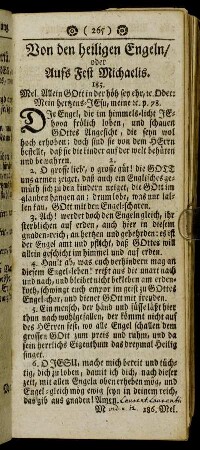 ( 265 )
Von den heiligen Engeln/
oder
Aufs Fest Michaelis.
185.
Mel. Allein GOtt in der höh sey ehr, ꝛc. Oder:
Mein hertzens-JEsu, meine ꝛc. p. 78.
DIe Engel, die im himmels-licht JE-
hova frölich loben, und schauen
GOttes Angesicht, die seyn wol
hoch erhoben; doch sind sie von dem HErrn
bestellt, daß sie die kinder auf der welt behüten
und bewahren. 2.
2. O grosse lieb, o grosse güt! die GOTT
uns armen zeiget, daß auch ein Englisches ge-
müth sich zu den kindern neiget, die GOtt im
glauben hangen an; drum lobe, was nur lal-
len kan, GOtt mit den Engel-schaaren.
3. Ach! werdet doch den Engeln gleich, ihr
sterblichen auf erden, auch hier in diesem
gnaden-reich, an hertzen und geberden: es ist
der Engel amt und pflicht, daß GOttes will
allein geschicht im himmel und auf erden.
4. Haut ab, was euch verhindern mag an
diesem Engel-leben! reißt aus die unart nach
und nach, und bleibet nicht bekleben am erden-
koth, schwinget euch empor im geist zu GOttes
Engel-chor, und dienet GOtt mit freuden.
5. Ein mensch, der händ und füsse läßt hier
thun nach wohlgefallen, der kömmt nicht auf
des HErren fest, wo alle Engel schallen dem
grossen GOtt zum preis und ruhm, und da
sein herrliches Eigenthum das dreymal Heilig
singet.
6. O JESU, mache mich bereit und tüch-
tig, dich zu loben, damit ich dich, nach dieser
zeit, mit allen Engeln oben erheben mög, und
Engel-gleich mög ewig seyn in deinem reich,
das gib aus gnaden! Amen.
M 186. Mel.